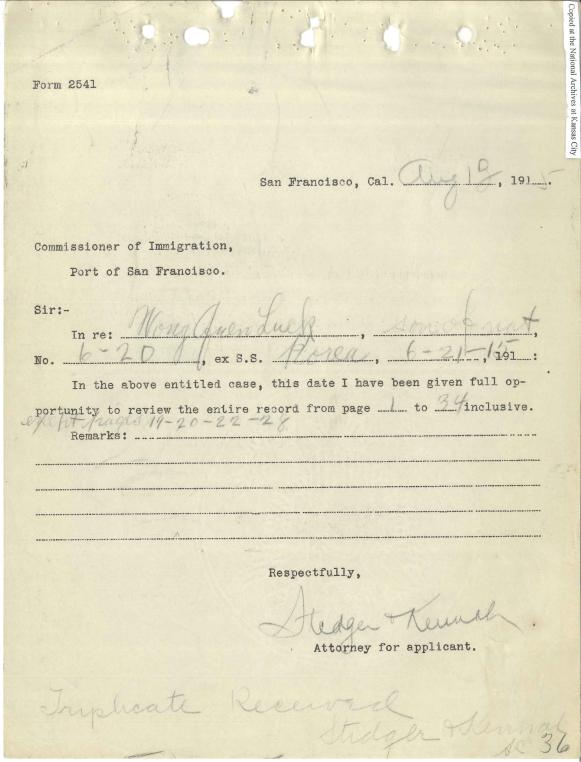 Copied at the National Archives at Kansas City
Form 2541
San Francisco, Cal. Aug 10, 1915.
Commissioner of Immigration,
Port of San Francisco.
Sir:-
In re: Wong Quen Luck, son of nat,
No. 6-20, ex S.S. Korea, 6-21-15, 191 :
In the above entitled case, this date I have been given full op-
portunity to review the entire record from page 1 to 34 inclusive.
except pages 19-20-22-28
Remarks:
Respectfully,
Stidger & Kennah
Attorney for applicant.
Triplicate Received
Stidger & Kennah
36